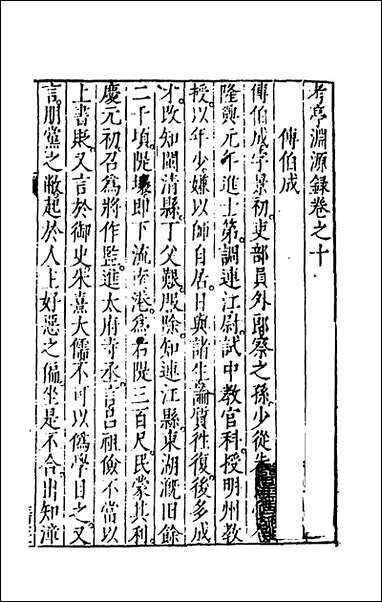 考亭淵源録卷之十
傅伯成
傅伯成字景初吏部員外郎察之孫少從朱
隆興元年進士第調連江尉試中教官科授明州教
授以年少嫌以師自居日與諸生論質往復後多成
才改知閩清縣丁父艱服除知連江縣東湖漑旧餘
二千頃隄壞即下流南港爲石隄三百尺民蒙其利
慶元初召爲將作監進太府寺丞言呂祖儉不當以
上書貶又言於御史朱熹大儒不可以僞學目之又
言朋黨之敝起於人主好惡之偏坐是不合出知漳